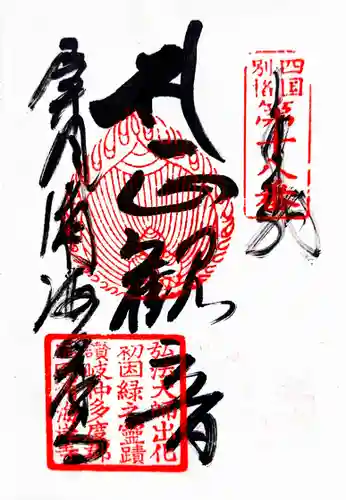 四国
別格第十八番
奉拝
正観音
屏風浦海岸寺
弘法大師出化
初因縁之靈蹟
讃岐仲多度郡